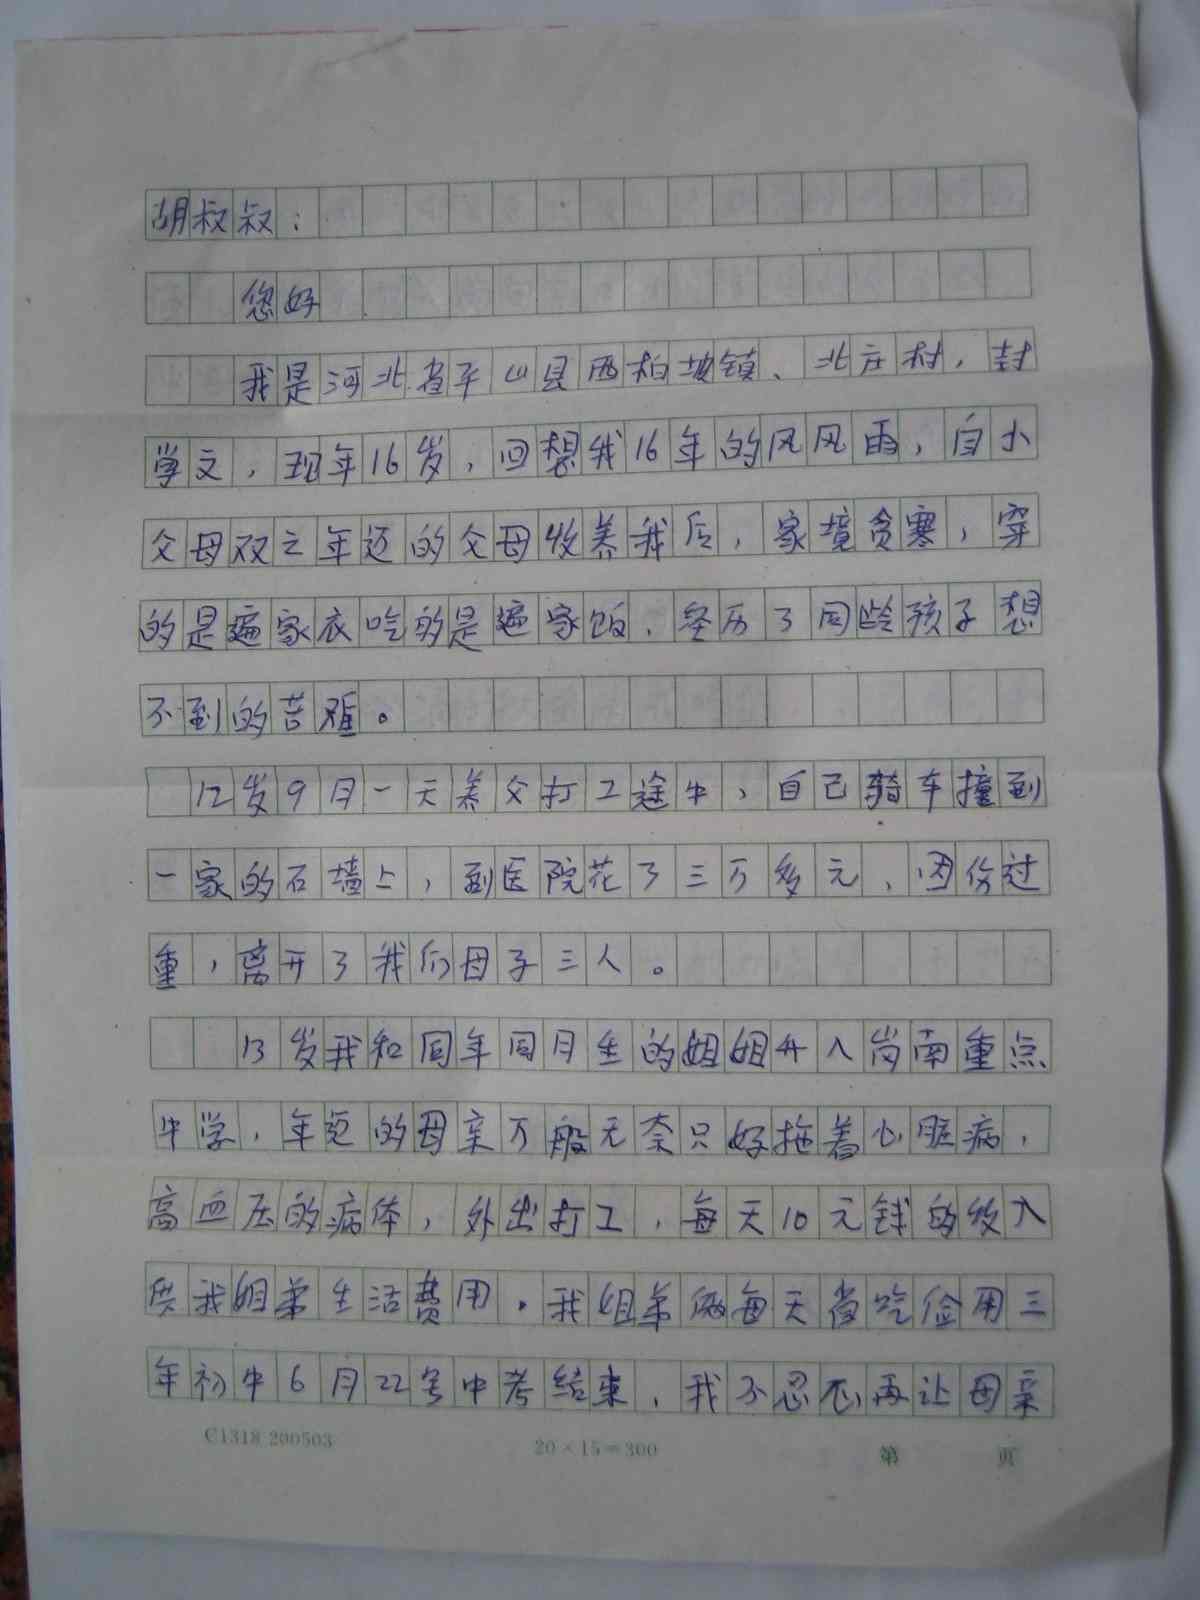 胡叔叔：
您好
我是河北省平山县西柏坡镇、北庄村，封
学文，现年16岁，回想我16年的风风雨，自小
父母双亡年迈的父母收养我后，家境贫寒，穿
的是遍家衣吃的是遍家饭．经历了同龄孩子想
不到的苦难。
12岁9月一天养父打工途中，自己骑车撞到
一家的石墙上，到医院花了三万多元，因伤过
重，离开了我们母子三人。
13岁我和同年同月生的姐姐升入岗南重点
中学，年迈的母亲万般无奈只好拖着心脏病，
高血压的病体，外出打工，每天10元钱的收入
供我姐弟生活费用．我姐弟俩每天省吃俭用三
年初中6月22号中考结束，我不忍心再让母亲
C1318 200503
20×15=300
第 页